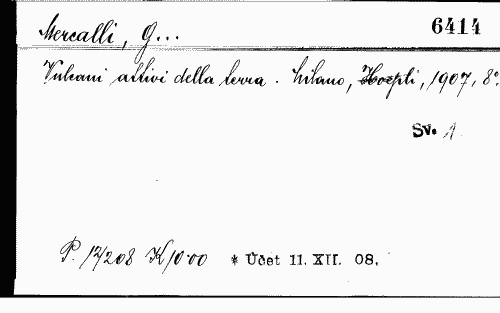 Mercalli, G... 6414
Vulcani attivi della terra. Milano, Hoepli, 1907, 8°.
Sv. 1.
P. 17/208 K 10·00 * Účet 11. XII. 08.